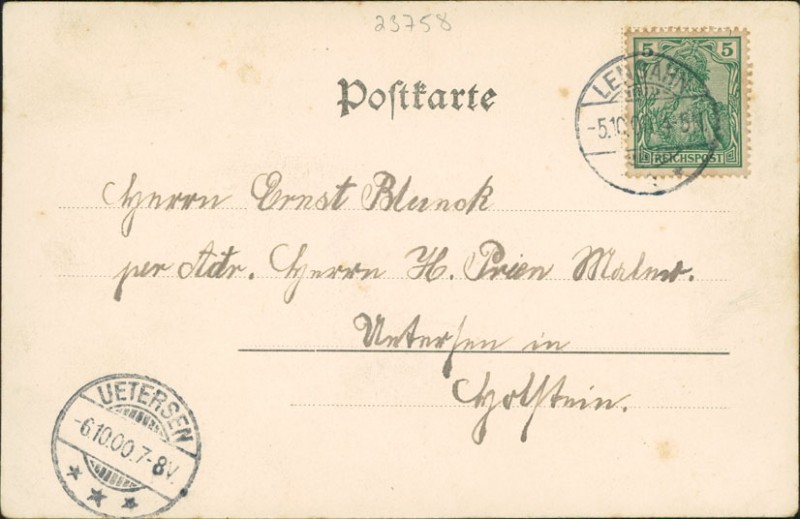 23758
5 5
REICHSPOST
LENSAHN
-5.10.00
Postkarte
Herrn Ernst Blunck
per Adr. Herrn H. Prien Maler.
Uetersen in
Holstein.
UETERSEN
-6.10.00.7-8V.